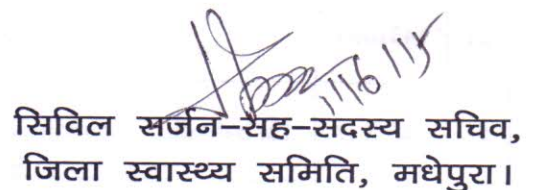 सिविल सर्जन-सह-सदस्य सचिव,
जिला स्वास्थ्य समिति, मधेपुरा।